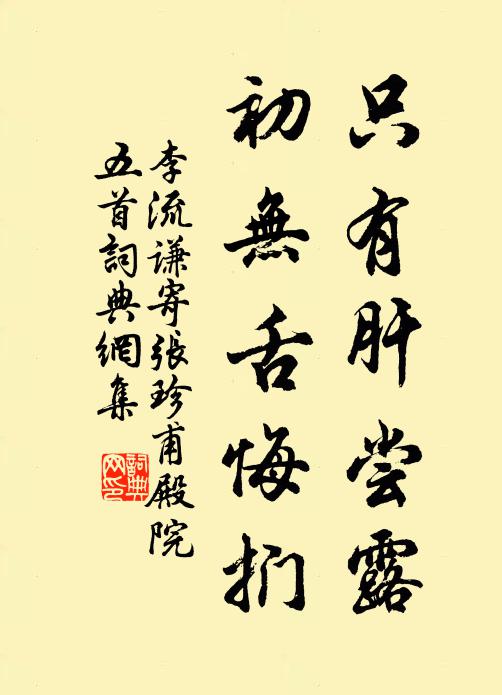 只有肝尝露
初無舌悔捫
李流谦寄張珍甫殿院
五首詞典網集
詞典
网印